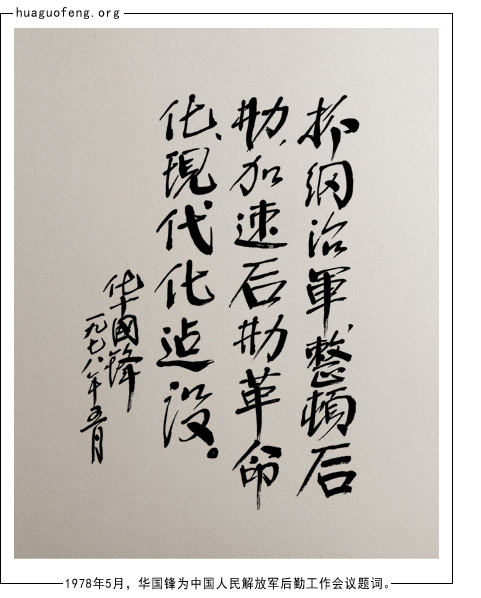 huaguofeng.org
抓纲治軍整頓后
勤,加速后勤革命
化、現代化建设。
华國锋
一九七八年五月
1978年5月，华国锋为中国人民解放军后勤工作会议题词。